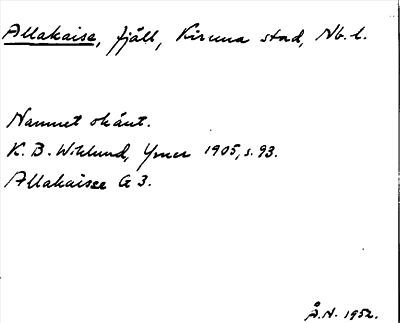 Allakaise, fjäll, Kiruna stad, Nb. l.
Namnet okänt.
K. B. Wiklund, Ymer 1905, s. 93.
Allakaisee G 3.
Å. N. 1952.